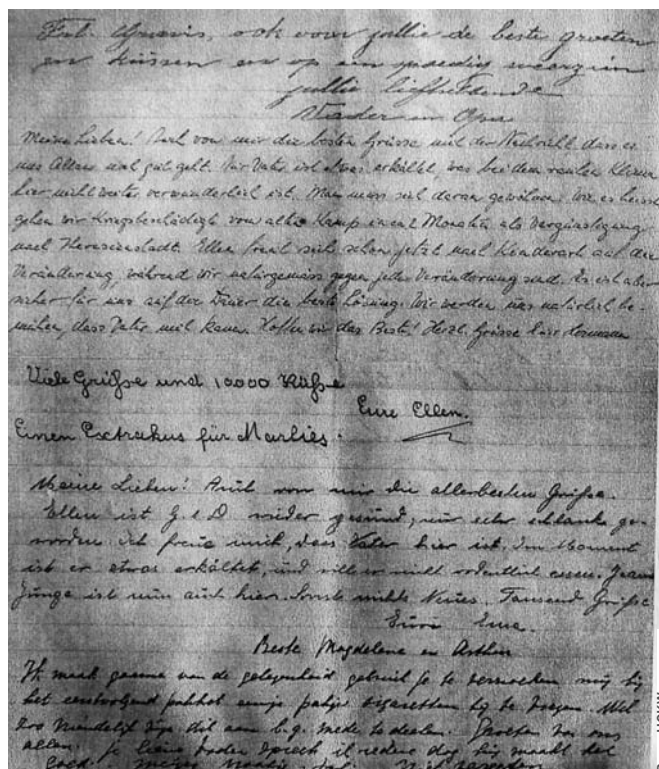 ook voor jullie de beste groeten
en küssen en op een spoedig weerzien
jullie liefhebbende
Vader en Opa
Meine Lieben! Auch von mir die besten Grüsse mit der Nachricht, dass es
uns Allen und gut geht. Nur Vater ist etwas erkältet, was bei dem rauhen Klima
hier nicht weiter verwunderlich ist. Man muss sich daran gewöhnen. Wie es heisst
gehen wir Kriegsbeschädigte vom alten Kamp in ca 2 Monaten als Vergünstigung
nach Theresienstadt. Ellen freut sich schon jetzt nach Kinderart auf die
Veränderung, während wir naturgemäss gegen jede Veränderung sind. Es ist aber
sicher für uns auf der Dauer die beste Lösung. Wir werden uns natürlich be-
mühen, dass Vater mit kann. Hoffen wir das Best! Herzl. Grüsse Euer Hermann
Viele Grüße und 10000 Küße
Eure Ellen.
Einen Extrakus für Marlies.
Meine Lieben! Auch von mir die allerbesten Grüße.
Ellen ist G. s. D wieder gesund, nur sehr schlank ge-
worden. Ich freue mich, dass Vater hier ist. Im Moment
ist er etwas erkältet, und will er nicht ordentlich essen.
Junge ist nun auch hier. Sonst nichts Neues. Tausend Grüße
Eure Erna.
Beste Magdelena en Arthur
Ik maak gaarne van de gelegenheid gebruik je te verzoeken mij bij
het eerstvolgend pakket eenige pakjes cigaretten bij te voegen. Wil
zoo vriendelijk zijn dit aan b.g. mede te deelen. Groeten van ons
allen. Je lieve vader spreek ik iedere dag hij maakt het
goed.